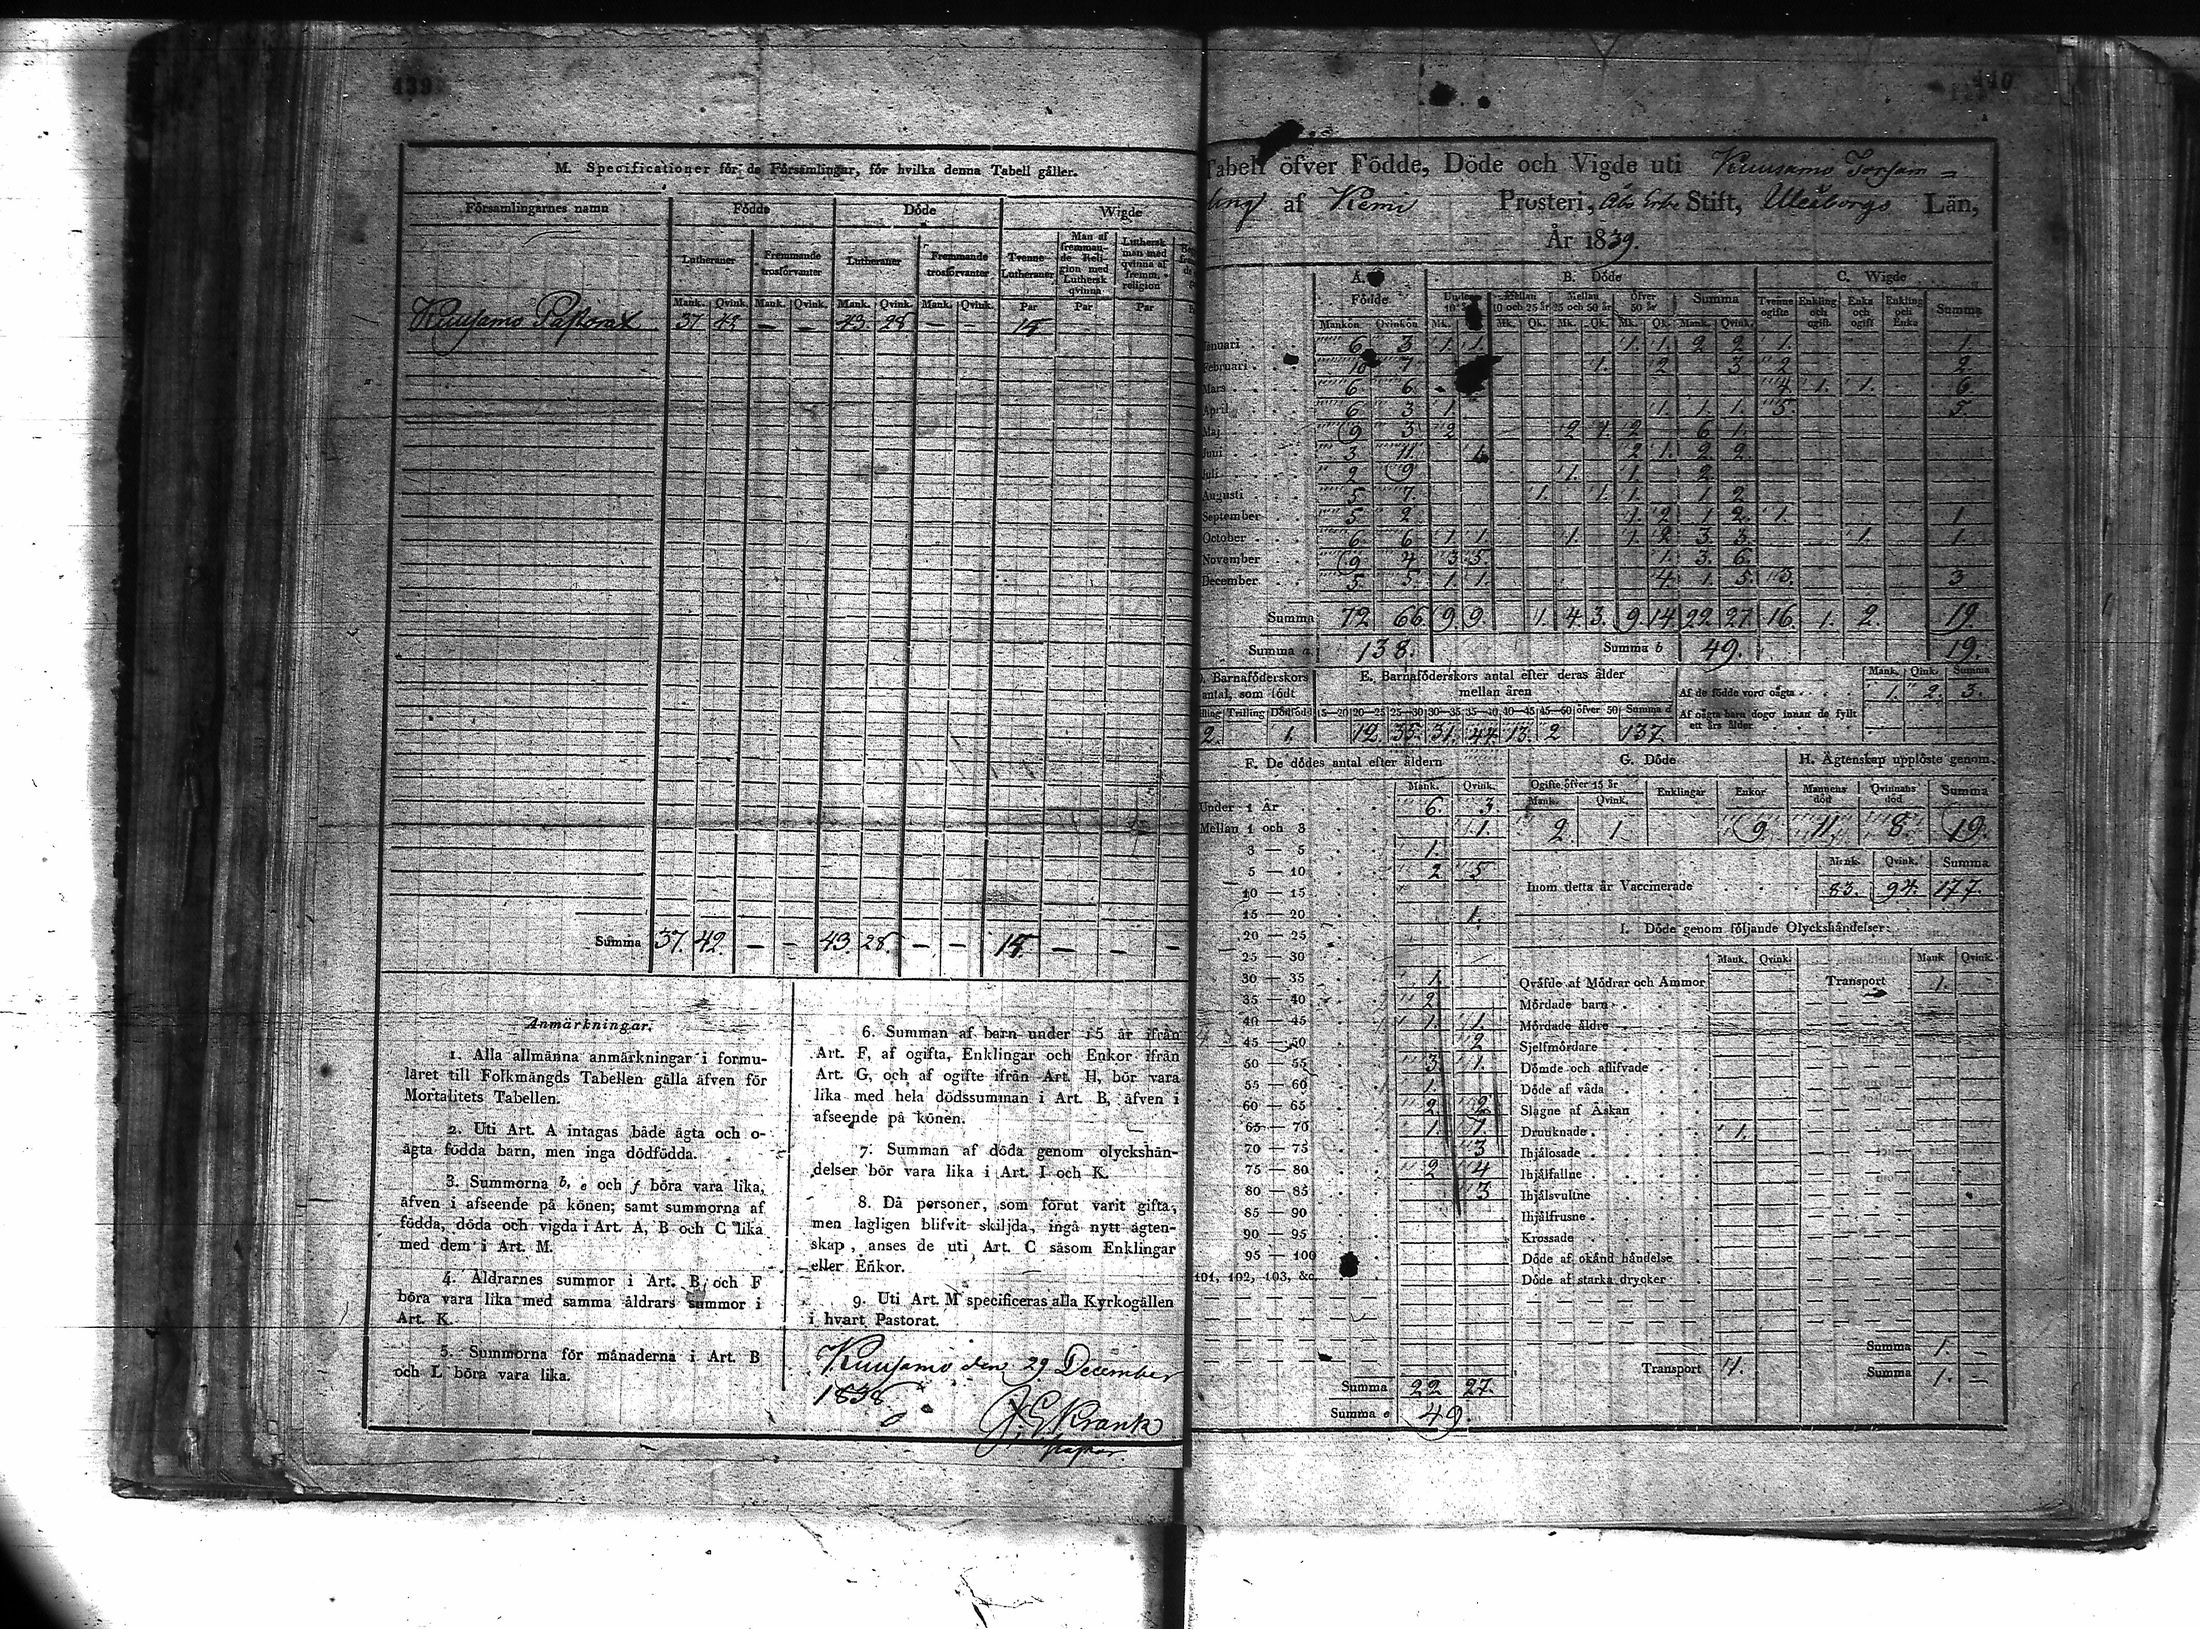 439
M. Specificationer för de Församlingar, för hvilka denna Tabell gäller.
Församlingarnes namn Födde Döde Wigde
Lutheraner Fremmande trosförvanter Lutheraner Fremmande trosförvanter Tvenne Lutheraner Man af fremmande Religion med Luthersk qvinna Luthersk man med qvinna af fremm. religion
Mank. Qvink. Mank. Qvink. Mank. Qvink. Mank. Qvink. Par Par Par
Kuusamo Pastorat 37 42 — — 43 28 — — 14
Summa 37. 42. — — 43. 28. — — 14. — — —
Anmärkningar.
1. Alla allmänna anmärkningar i formu-
läret till Folkmängds Tabellen gälla äfven för
Mortalitets Tabellen.
2. Uti Art. A intagas både ägta och o-
ägta födda barn, men inga dödfödda.
3. Summorna b, e och f böra vara lika,
äfven i afseende på könen; samt summorna af
födda, döda och vigda i Art. A, B och C lika
med dem i Art. M.
4. Åldrarnes summor i Art. B och F
böra vara lika med samma åldrars summor i
Art. K.
5. Summorna för månaderna i Art. B
och L böra vara lika.
6. Summan af barn under 15 år ifrån
Art. F, af ogifta, Enklingar och Enkor ifrån
Art. G, och af ogifte ifrån Art. H, bör vara
lika med hela dödssumman i Art. B, äfven i
afseende på könen.
7. Summan af döda genom olyckshän-
delser bör vara lika i Art. I och K.
8. Då personer, som förut varit gifta,
men lagligen blifvit skiljda, ingå nytt ägten-
skap, anses de uti Art. C såsom Enklingar
eller Enkor.
9. Uti Art. M specificeras alla Kyrkogällen
i hvart Pastorat.
Kuusamo den 29 December
1838
J. E. Krank
Pastor
440
Tabell öfver Födde, Döde och Vigde uti Kuusamo Forsam=
ling af Kemi Prosteri, Åbo Erke Stift, Uleåborgs Län,
År 1839.
A. Födde B. Döde C. Wigde
Under 10 år Mellan 10 och 25 år Mellan 25 och 50 år Öfver 50 år Summa Tvenne ogifte Enkling och ogift Enka och ogift Enkling och Enka Summa
Mankön Qvinkön Mk. Qk. Mk. Qk. Mk. Qk. Mank. Qvink.
Januari 6 3 1. 1. 1. 1. 2 2 1. 1
Februari 10 7 1. 2 3 2 2
Mars 6 6 4 1. 1. 6
April 6 3 1. 1. 1. 1. 5. 5.
Maj 9 3 2 2 1. 2 6 1.
Juni 3 11. 2 1. 2 2
Juli 2 9 1. 1. 2
Augusti 5 7. 1. 1. 1. 1 2
September 5 2 1. 2 1 2. 1. 1
October 6 6 1. 1. 1. 1 2 3 3 1. 1.
November 9 4 3 5. 1. 3. 6.
December 5 5 1. 1. 4. 1. 5. 3. 3
Summa 72 66 9. 9. 1. 4. 3. 9. 14 22 27 16. 1. 2. 19
Summa a 138. Summa b 49. 19.
D. Barnaföderskors antal, som födt E. Barnaföderskors antal efter deras ålder mellan åren Mank. Qvink. Summa
Af de födde voro oägta 1. 2. 3.
Trilling Dödfödt 15—20 20—25 25—30 30—35 35—40 40—45 45—60 öfver 50 Summa d
Af oägta barn dogo innan de fyllt
ett års ålder
2. 1. 12. 35. 31. 44. 13. 2 137
F. De dödes antal efter åldern G. Döde H. Ägtenskap upplöste genom
Mank. Qvink. Ogifte öfver 15 år Enklingar Enkor Mannens död Qvinnans död Summa
Mank. Qvink.
2. 1. 9. 11. 8. 19.
Under 1 År 6. 3.
Mellan 1 och 3 1.
3 — 5 1.
5 — 10 2 5
10 — 15
15 — 20 1.
20 — 25
25 — 30
30 — 35 1.
35 — 40 2
40 — 45 1. 1.
45 — 50 2
50 — 55 3 1.
55 — 60 1.
60 — 65 2. 2.
65 — 70 1. 1.
70 — 75 3
75 — 80 2 4
80 — 85 3
85 — 90
90 — 95
95 — 100
101, 102, 103, &c.
Summa 22 27.
Summa e 49.
Mank. Qvink. Summa
Inom detta år Vaccinerade 83. 94. 177.
I. Döde genom följande Olyckshändelser:
Mank. Qvink. Mank. Qvink.
Qväfde af Mödrar och Ammor Transport 1.
Mördade barn
Mördade äldre
Sjelfmördare
Dömde och aflifvade
Döde af våda
Slagne af Åskan
Drunknade 1.
Ihjälosade
Ihjälfallne
Ihjälsvultne
Ihjälfrusne
Krossade
Döde af okänd händelse
Döde af starka drycker
Summa 1. —
Transport 1. Summa 1. —